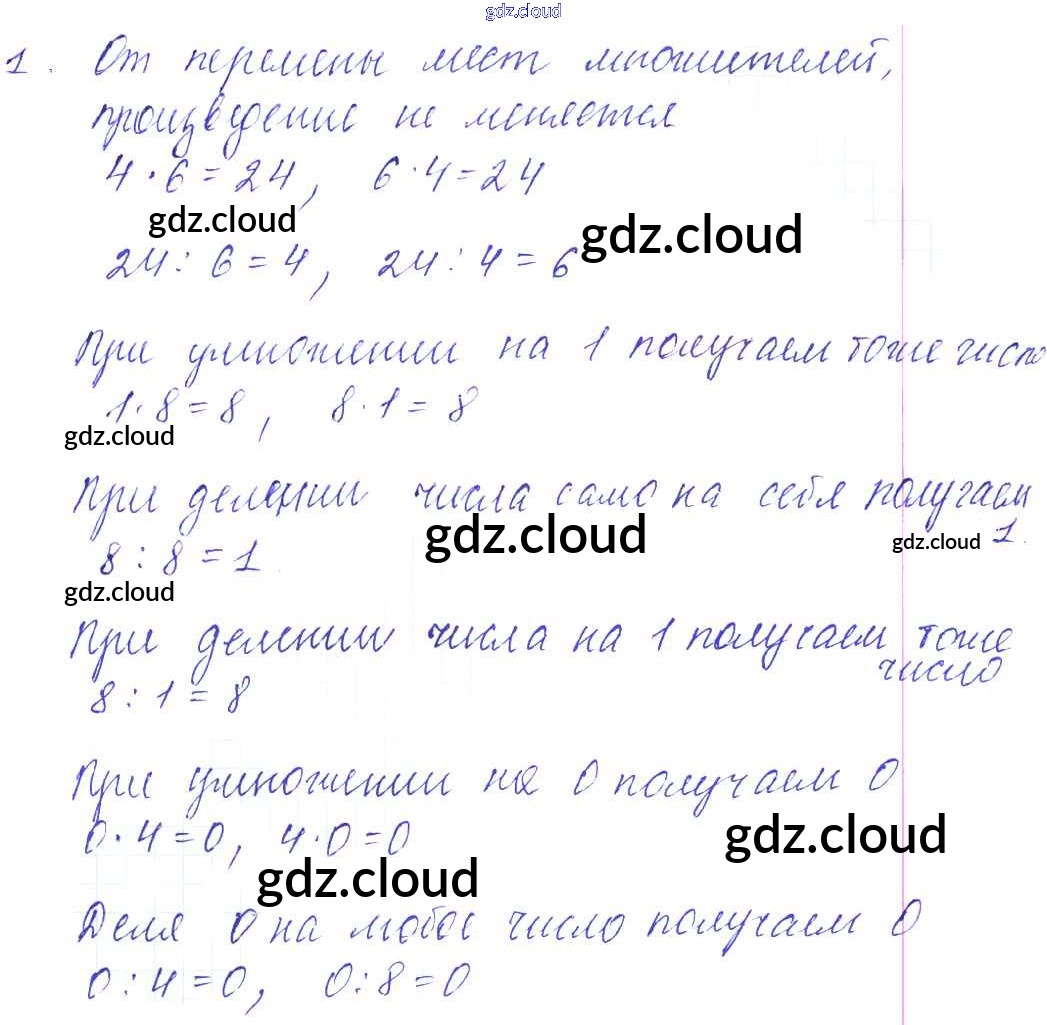 gdz.cloud
1. От перемены мест множителей,
произведение не меняется
4 · 6 = 24, 6 · 4 = 24
gdz.cloud gdz.cloud
24 : 6 = 4, 24 : 4 = 6
При умножении на 1 получаем тоже число
1 · 8 = 8, 8 · 1 = 8
gdz.cloud
При делении числа само на себя получаем
gdz.cloud gdz.cloud 1.
8 : 8 = 1
gdz.cloud
При делении числа на 1 получаем тоже
число
8 : 1 = 8
При умножении на 0 получаем 0
0 · 4 = 0, 4 · 0 = 0
gdz.cloud gdz.cloud
Деля 0 на любое число получаем 0
0 : 4 = 0, 0 : 8 = 0